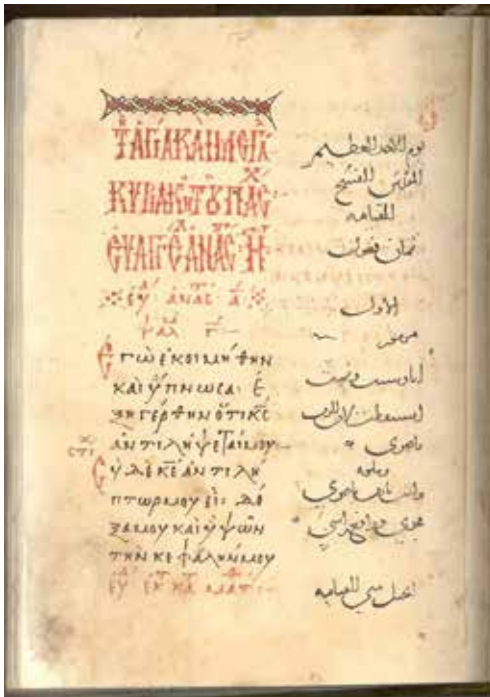 ΤΗ ΑΓΙΑ ΚΑΙ ΜΕΓΑΛ
ΚΥΡΙΑΚΗ ΤΟΥ ΠΑΣΧ
ΕΥΑΓΓΕΛ ΑΝΑΣΤ Η
ευ αναστ α
ψαλ γ
Ἐγὼ ἐκοιμήθην
καὶ ὕπνωσα· ἐ
ξηγέρθην ὅτι κς
ἀντιλήψεταί μου
στιχ
Σὺ δὲ κε ἀντιλή
πτωρ μου εἶ· δό
ξα μου καὶ ὑψῶν
τὴν κεφαλήν μου
ευ εκ κατ ματθ
يوم الاحد العظيم
المقدس الفسح
للقيامه
ثمان فصول
الاول
مزمور
انا رقدت ونمت
استيقظت لان الرب
ناصري
وانت يا رب ناصري
مجدي ورافع راسي
انجيل متى للقيامه